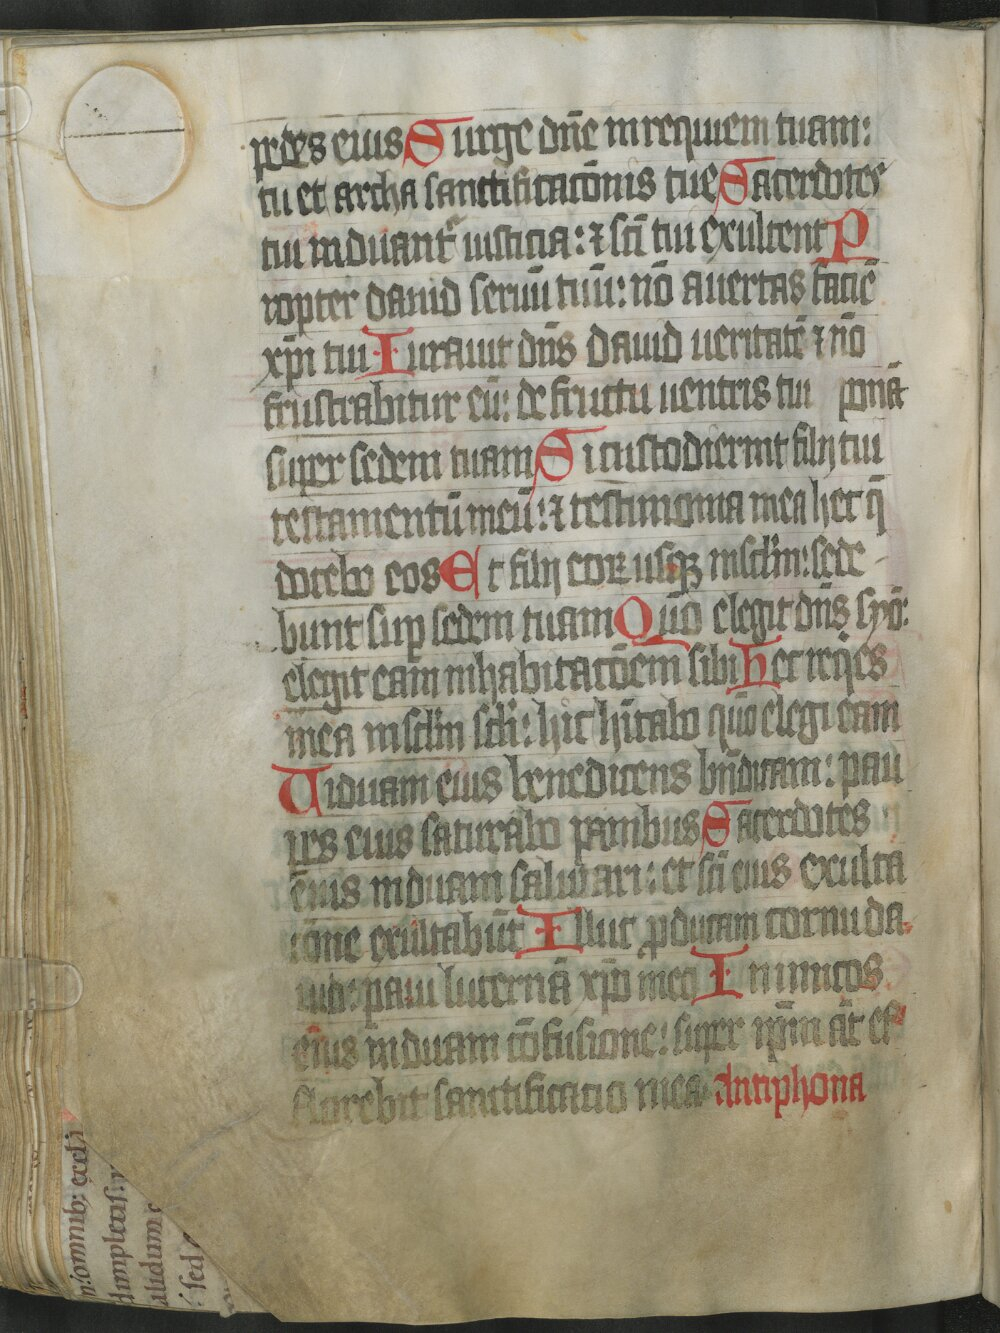 pedes eius Surge dn̄e in requiem tuam:
tu et archa sanctificatōnis tue Sacerdotes
tui induant᷑ iusticia: ⁊ sc̄i tui exultent P
ropter dauid seruū tuū: nō auertas faciē
xp̄i tui Iurauit dn̄s dauid ueritatē ⁊ nō
frustrabitur eū: de fructu uentris tui ponā
super sedem tuam Si custodierint filij tui
testamentū meū: ⁊ testimonia mea hec q̄
docebo eos Et filij eoꝝ usqꝫ in sc̄lm: sede
bunt suꝑ sedem tuam Quō elegit dn̄s syō:
elegit eam in habitatōem sibi Hec req̄es
mea in sc̄lm sc̄li: hic hītabo quō elegi eam
Uiduam eius benedicens bn̄dicam: pau
ꝑes eius saturabo panibus Sacerdotes
eius induam salutari: et sc̄i eius exulta
cōne exultabūt Illuc ꝓducam cornu da
uid: paraui lucernā xp̄o meo Inimicos
eius induam cōfusione: super ip̄m āt ef
florebit sanctificatio mea Antiphona
n: omnib; excel
dimpletis:
alidum
: sed